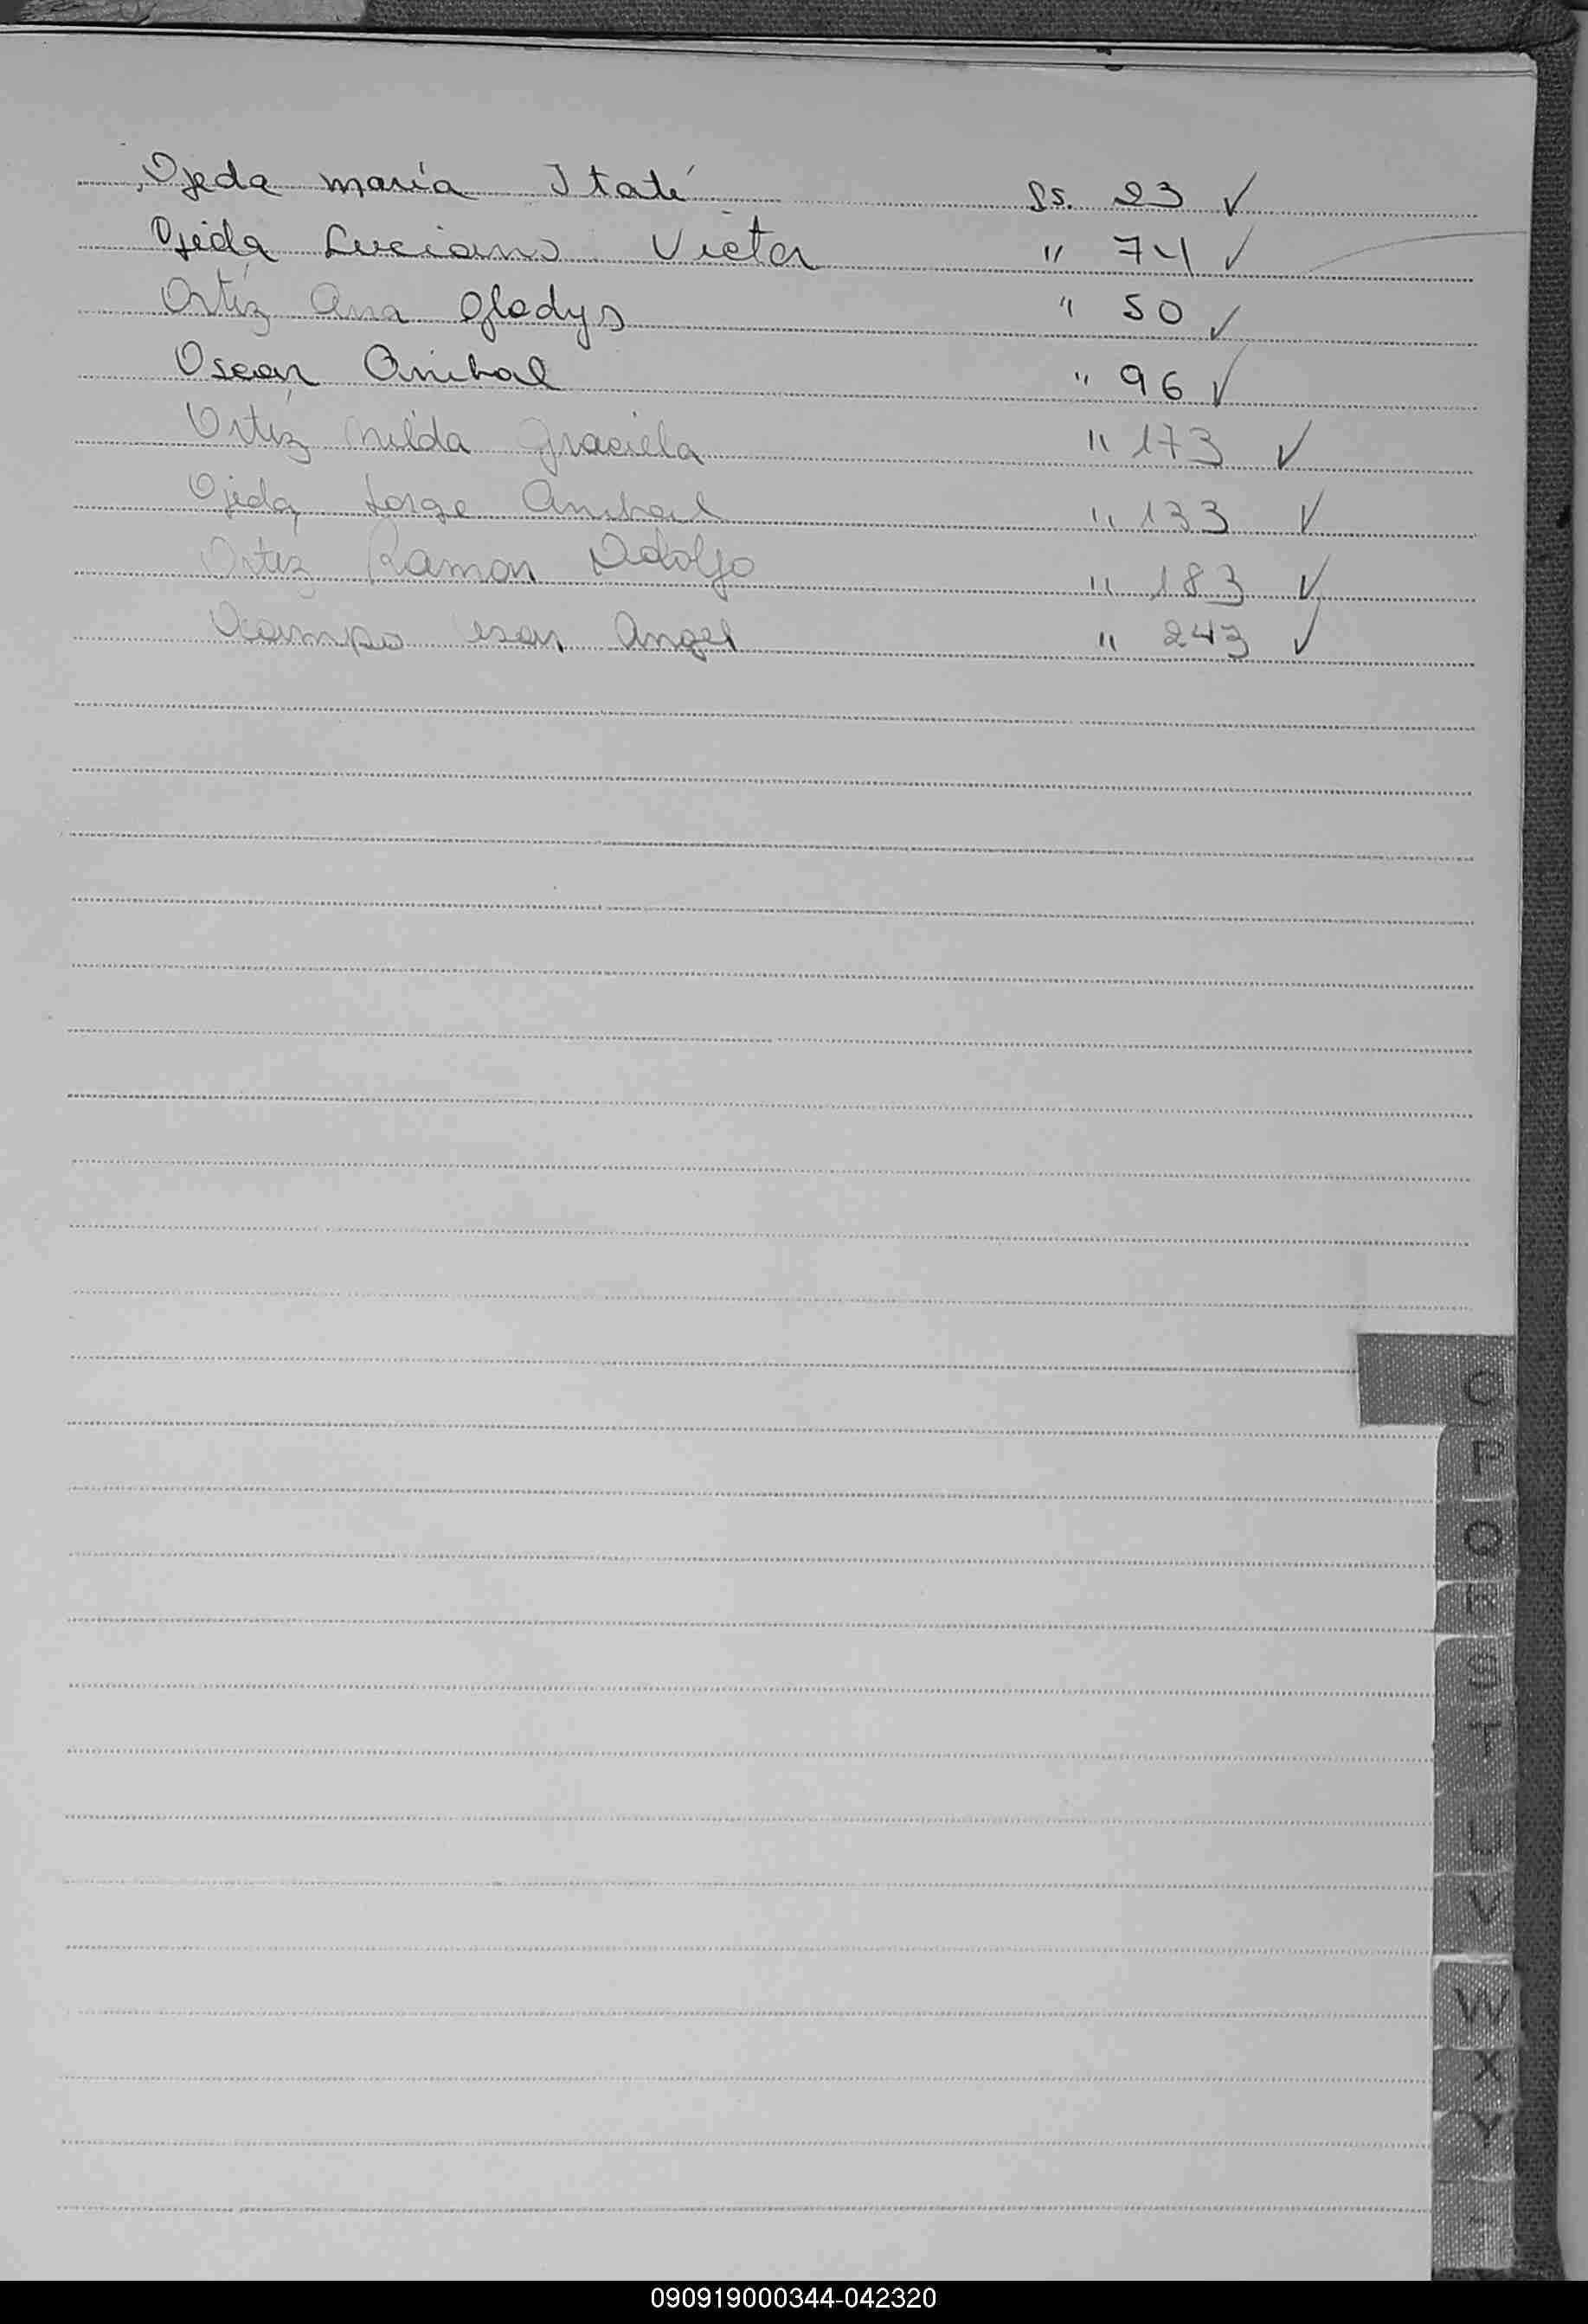 Ojeda maria Itatí Fs. 23 ✓
Ojeda Luciano Victor " 74 ✓
Ortíz Ana Gladys " 50 ✓
Oscar Anibal " 96 ✓
Ortíz Nilda Graciela " 173 ✓
Ojeda Jorge Anibal " 133 ✓
Ortíz Ramon Adolfo " 183 ✓
Ocampo Cesar Angel " 243 ✓
O
P
Q
R
S
T
U
V
W
X
Y
090919000344-042320